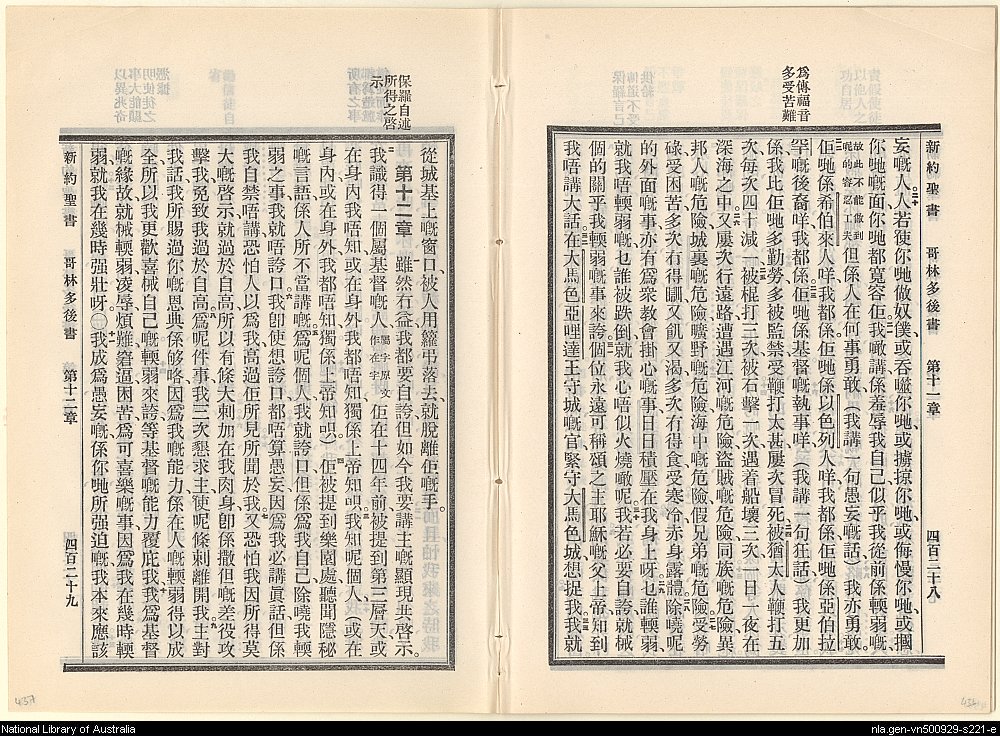 爲傳福音
多受苦難
新約聖書 哥林多後書 第十一章 四百二十八
妄嘅人、人若使你哋做奴僕、或吞嚥你哋、或擄掠你哋、或侮慢你哋、或摑
你哋嘅面、你哋都寬容佢、我噉講係羞辱我自己、似乎我從前係輭弱嘅、
故此不能做到
呢的容忍工夫
但係人在何事勇敢、(我講一句愚妄嘅話)我亦勇敢。
佢哋係希伯來人咩、我都係、佢哋係以色列人咩、我都係、佢哋係亞伯拉
罕嘅後裔咩、我都係、佢哋係基督嘅執事咩、(我講一句狂話)我更加
係、我比佢哋多勤勞、多被監禁、受鞭打太甚、屢次冒死、被猶太人鞭打五
次、每次四十減一、被棍打三次、被石擊一次、遇着船壞三次、一日一夜在
深海之中、又屢次行遠路、遭遇江河嘅危險、盜賊嘅危險、同族嘅危險、異
邦人嘅危險、城裏嘅危險、曠野嘅危險、海中嘅危險、假兄弟嘅危險、受勞
碌、受困苦、多次冇得瞓、又飢又渴、多次冇得食、受寒冷、赤身露體、除嘵呢
的外面嘅事、亦有爲衆教會掛心嘅事、日日積壓在我身上呀、乜誰輭弱、
就我唔輭弱嘅、乜誰被跌倒、就我心唔似火燒嘅呢、我若必要自誇、就械
個的關乎我輭弱嘅事來誇、個位永遠可稱頌之主耶穌嘅父上帝、知到
我唔講大話、在大馬色、亞哩達王守城嘅官、緊守大馬色城、想捉我、我就
保羅自述
所得之啓
示
新約聖書 哥林多後書 第十二章 四百二十九
從城基上嘅窗口、被人用籮弔落去、就脫離佢嘅手。
第十二章 雖然冇益、我都要自誇、但如今我要講主嘅顯現共啓示。
我識得一個屬基督嘅人、
屬字原文
作在字
佢在十四年前、被提到第三層天、或
在身內、我唔知、或在身外、我都唔知、獨係上帝知呮、我知呢個人、(或在
身內、或在身外、我都唔知、獨係上帝知呮)佢被提到樂園處、聽聞隱秘
嘅言語、係人所不當講嘅、爲呢個人我就誇口、但係爲我自己、除嘵我輭
弱之事、我就唔誇口、我卽使想誇口、都唔算愚妄、因爲我必講眞話、但係
我自禁唔講、恐怕人以爲我高過佢所見所聞於我、又恐怕我因所得莫
大嘅啓示、就過於自高、所以有條大刺加在我肉身、卽係撒但嘅差役攻
擊我、免致我過於自高、爲呢件事、我三次懇求主、使呢條刺離開我、主對
我話、我所賜過你嘅恩典係够咯、因爲我嘅能力、係在人嘅輭弱得以成
全、所以我更歡喜械自己嘅輭弱來誇、等基督嘅能力覆庇我、我爲基督
嘅緣故、就械輭弱、凌辱、煩難、窘逼、困苦、爲可喜樂嘅事、因爲我在幾時輭
弱、就我在幾時强壯呀、○我成爲愚妄嘅、係你哋所强迫嘅、我本來應該
National Library of Australia
nla.gen-vn500929-s221-e